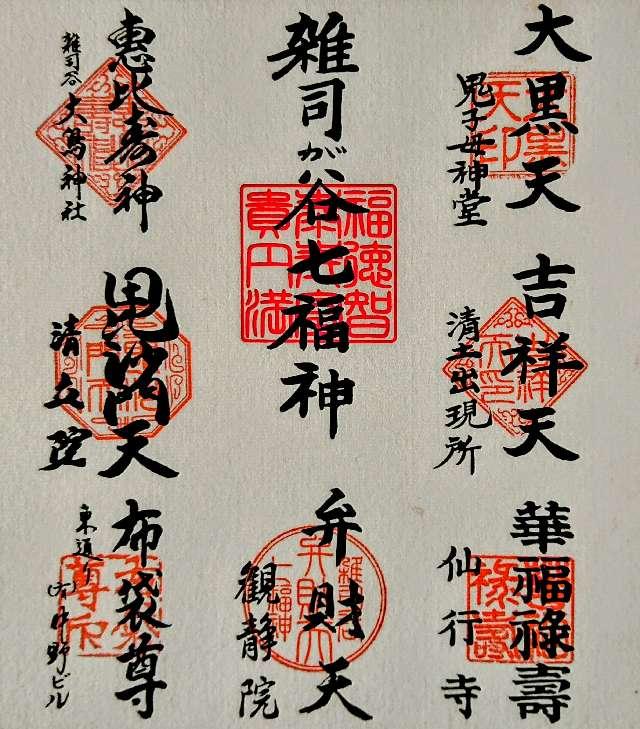 大黒天
鬼子母神堂
吉祥天
清土出現所
華福禄壽
仙行寺
雑司が谷七福神
福徳智
貴円満
弁財天
観静院
惠比寿神
雑司谷
大鳥神社
毘沙門天
清立院
布袋尊
東通り
中野ビル